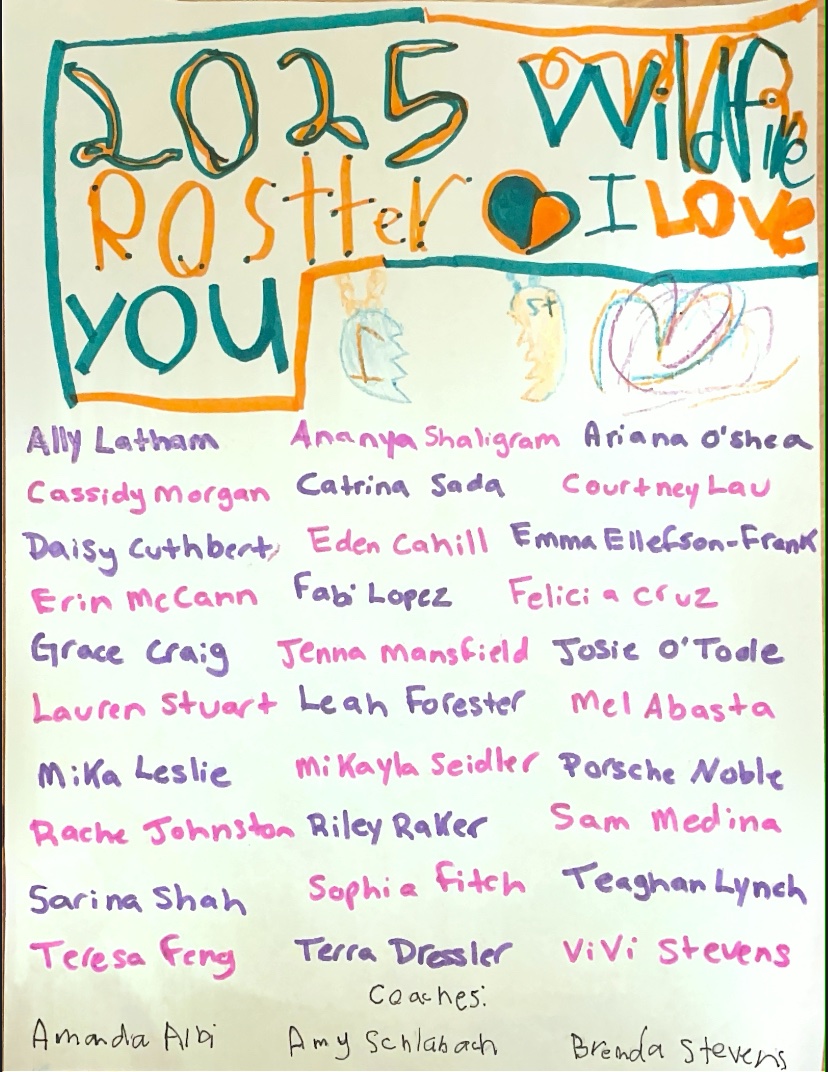 2025 Wildfire
ROSttEr I LOVe
YOU
I st
Ally Latham Ananya Shaligram Ariana O'shea
Cassidy Morgan Catrina Sada Courtney Lau
Daisy Cuthbert, Eden Cahill Emma Ellefson-Frank
Erin McCann Fabi Lopez Felicia Cruz
Grace Craig Jenna Mansfield Josie O'Toole
Lauren Stuart Leah Forester Mel Abasta
Mika Leslie Mikayla Seidler Porsche Noble
Rache Johnston Riley Raker Sam Medina
Sarina Shah Sophia Fitch Teaghan Lynch
Teresa Feng Terra Dressler ViVi Stevens
Coaches:
Amanda Albi Amy Schlabach Brenda Stevens